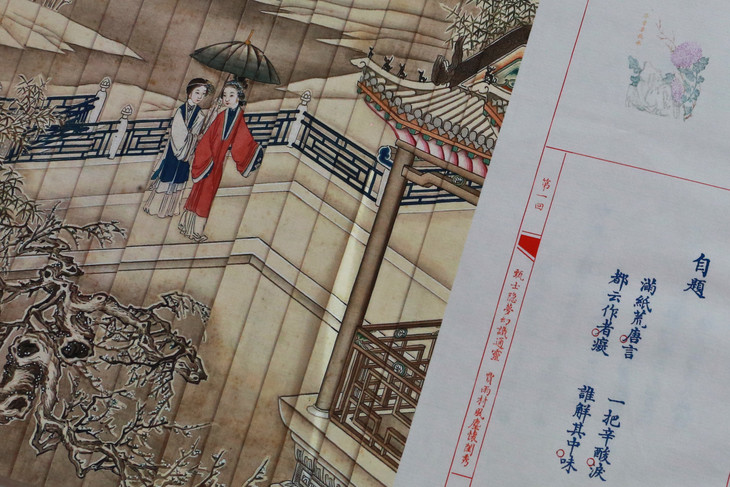 自題
滿紙荒唐言 一把辛酸淚
都云作者癡 誰解其中味
第一回
甄士隱夢幻識通靈 賈雨村風塵懷閨秀